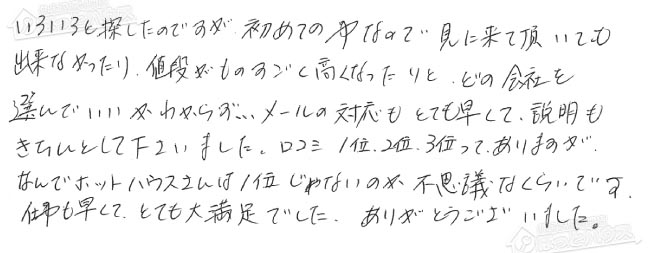 いろいろと探したのですが 初めての事なので 見に来て頂いても
出来なかったり、値段がものすごく高くなったりと、どの会社を
選んでいいかわからず… メールの対応も とても早くて、説明も
きちんとして下さいました。口コミ 1位、2位、3位って、ありますが、
なんでホットハウスさんは 1位じゃないのか 不思議なくらいです。
仕事も早くて、とても大満足でした。ありがとうございました。